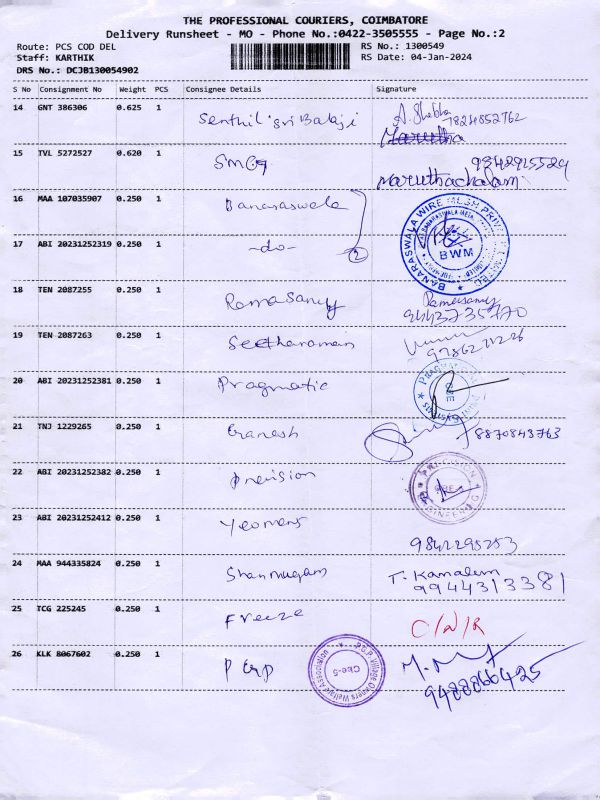 THE PROFESSIONAL COURIERS, COIMBATORE
Delivery Runsheet - MO - Phone No.:0422-3505555 - Page No.:2
Route: PCS COD DEL RS No.: 1300549
Staff: KARTHIK RS Date: 04-Jan-2024
DRS No.: DCJB130054902
S No Consignment No Weight PCS Consignee Details Signature
14 GNT 386306 0.625 1 Senthil Sri Balaji A. Shebha 7824852762
Marutha
15 TVL 5272527 0.620 1 SMG 9842915529
maruthachalam
16 MAA 107035907 0.250 1 Banaraswala
17 ABI 20231252319 0.250 1 -do- 2
BANARASWALA WIRE MESH PRIVATE LIMITED
BWM
18 TEN 2087255 0.250 1 Ramasamy Ramasamy
9443735770
19 TEN 2087263 0.250 1 Seetharaman
20 ABI 20231252381 0.250 1 Pragmatic
21 TNJ 1229265 0.250 1 Ganesh 8870843763
22 ABI 20231252382 0.250 1 Precision
PRECISION
23 ABI 20231252412 0.250 1 Yeomens 9842295253
24 MAA 944335824 0.250 1 Shanmugam T. Kamalam
9944313381
25 TCG 225245 0.250 1 Freeze C/N/R
26 KLK 8067602 0.250 1 P GrP
P.G.P. Village Owners Welfare Association
Cbe-5
9488866425